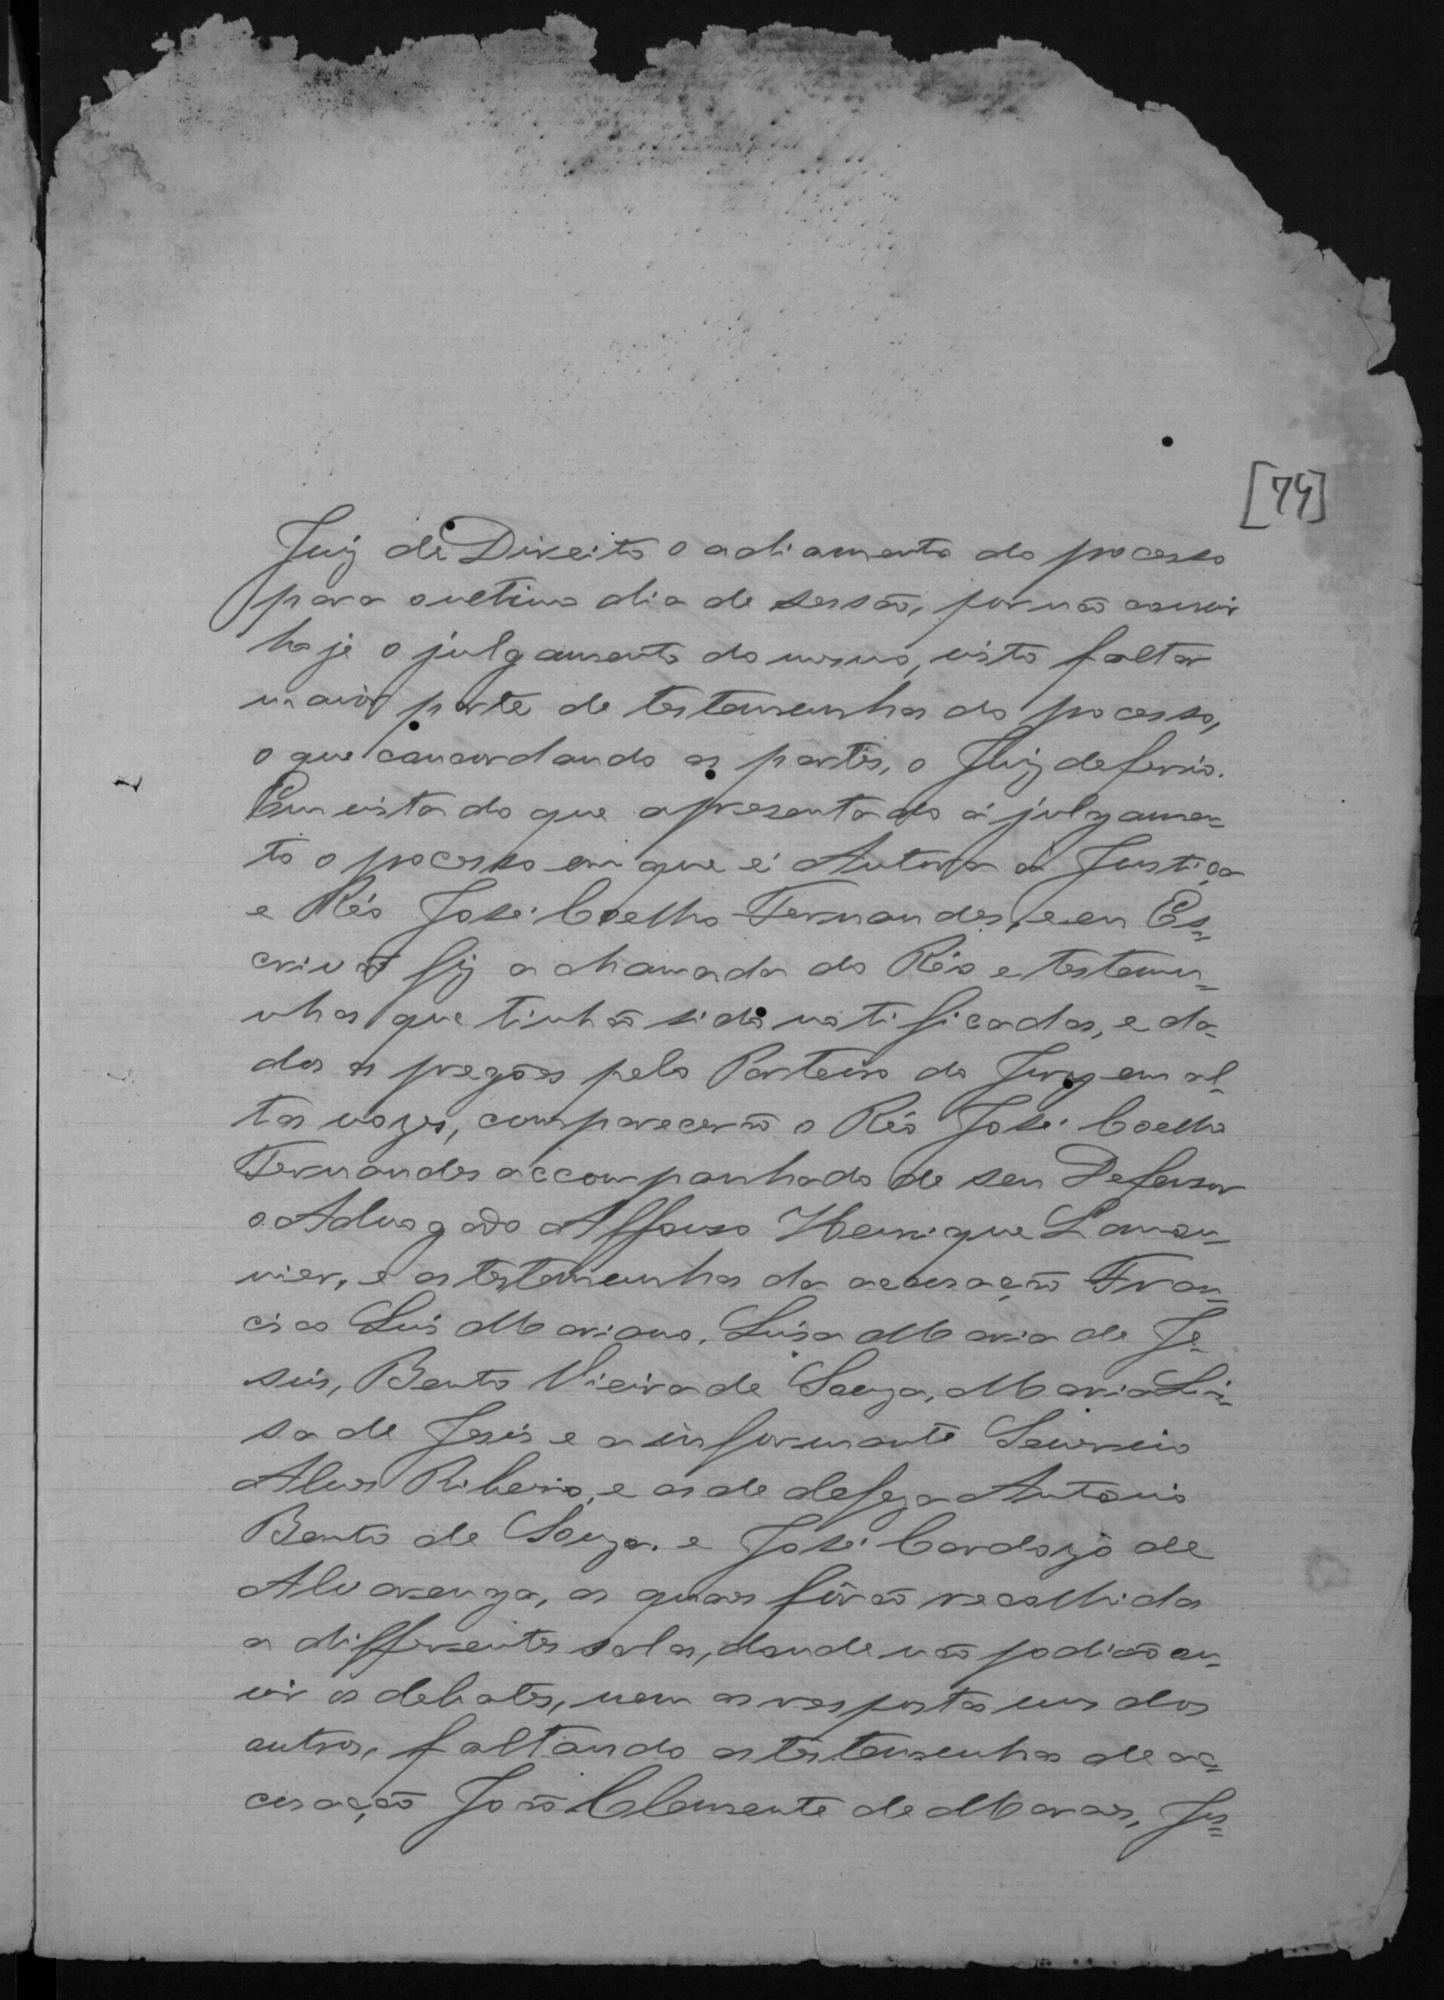 [74]
Juiz de Direito o adiamento do processo
para o ultimo dia de sessão, por não
hoje o julgamento do mesmo, visto faltar
maior parte de testemunhas do processo,
o que concordando as partes, o Juiz deferio.
Em vista do que apresentado á julgamen=
to o processo em que é Autora á Justiça
e Réo José Coelho Fernandes, e eu Es=
crivão fiz a chamada do Réo e testemu=
nhas que tinhão sido notificadas, e da=
dos os pregões pelo Porteiro do Jury em al=
tas vozes, comparecerão o Réo José Coelho
Fernandes accompanhado de seu Defensor
o Advogado Affonso Henrique Lamou=
nier, e as testemunhas da accusação Fran=
cisco Luis Mariano, Luisa Maria de Je=
sus, Bento Vieira de Souza, Maria Lui=
sa de Jesus e a informante Severino
Alves Ribeiro, e as de defeza Antonio
Bento de Souza. e José Cardozo de
Alvarenga, as quaes fôrão recolhidas
a differentes salas, donde não podião ou=
vir os debates, nem as respostas uns dos
outros, faltando as testemunhas de ac=
cusação João Clemente de Moraes, Jus=